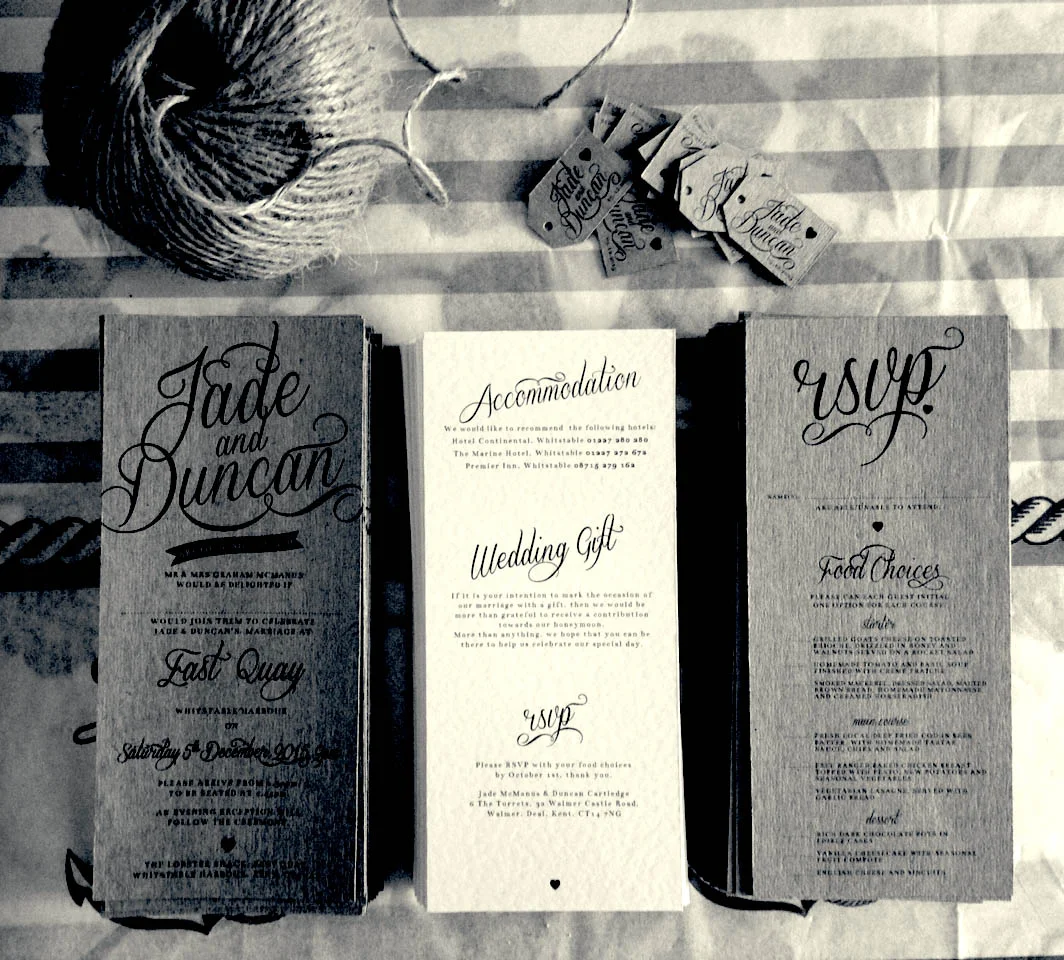 Jade
and
Duncan
Jade
and
Duncan
Jade
and
Duncan
Jade
and
Duncan
MR & MRS GRAHAM MCMANUS
WOULD BE DELIGHTED IF
WOULD JOIN THEM TO CELEBRATE
JADE & DUNCAN'S MARRIAGE AT
East Quay
WHITSTABLE HARBOUR
ON
Saturday 5th December 2015
PLEASE ARRIVE FROM
TO BE SEATED BY
AN EVENING RECEPTION WILL
FOLLOW THE CEREMONY
THE LOBSTER SHACK, EAST QUAY
WHITSTABLE HARBOUR,
Accommodation
We would like to recommend the following hotels:
Hotel Continental, Whitstable 01227 280 280
The Marine Hotel, Whitstable 01227 272 672
Premier Inn, Whitstable 08715 279 162
Wedding Gift
If it is your intention to mark the occasion of
our marriage with a gift, then we would be
more than grateful to receive a contribution
towards our honeymoon.
More than anything, we hope that you can be
there to help us celebrate our special day.
rsvp
Please RSVP with your food choices
by October 1st, thank you.
Jade McManus & Duncan Cartledge
6 The Torrets, 32 Walmer Castle Road,
Walmer, Deal, Kent, CT14 7NG
rsvp
NAME(S)
ARE ABLE/UNABLE TO ATTEND.
Food Choices
PLEASE CAN EACH GUEST INITIAL
ONE OPTION FOR EACH COURSE:
starter
GRILLED GOATS CHEESE ON TOASTED
BRIOCHE, DRIZZLED IN HONEY AND
WALNUTS SERVED ON A ROCKET SALAD
HOMEMADE TOMATO AND BASIL SOUP
FINISHED WITH CREME FRAICHE
SMOKED MACKEREL, DRESSED SALAD, MALTED
BROWN BREAD, HOMEMADE MAYONNAISE
AND CREAMED HORSERADISH
main course
FRESH LOCAL DEEP FRIED COD IN BEER
BATTER, WITH HOMEMADE TARTAR
SAUCE, CHIPS AND SALAD
FREE RANGED BAKED CHICKEN BREAST
TOPPED WITH PESTO, NEW POTATOES AND
SEASONAL VEGETABLES
VEGETARIAN LASAGNE, SERVED WITH
GARLIC BREAD
dessert
RICH DARK CHOCOLATE POTS IN
EDIBLE CASES
VANILLA CHEESECAKE WITH SEASONAL
FRUIT COMPOTE
ENGLISH CHEESE AND BISCUITS